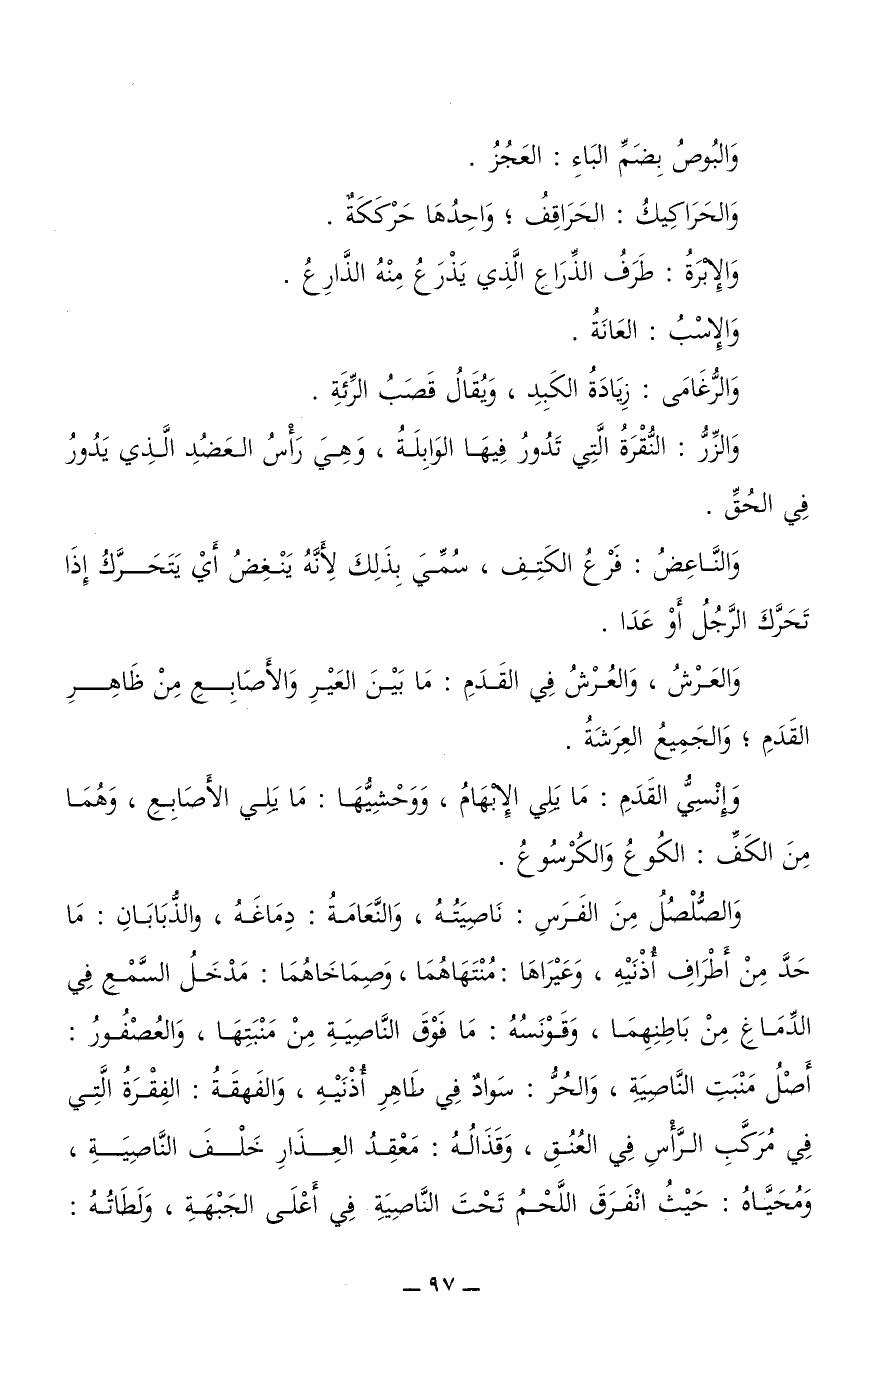 وَالبُوصُ بِضَمِّ البَاءِ : العَجُزُ .
وَالحَرَاكِيكُ : الحَرَاقِفُ ؛ وَاحِدُهَا حَرْكَكَةٌ .
وَالإِبْرَةُ : طَرَفُ الذِّرَاعِ الَّذِي يَذْرَعُ مِنْهُ الذَّارِعُ .
وَالإِسْبُ : العَانَةُ .
وَالرُّغَامَى : زِيَادَةُ الكَبِدِ ، وَيُقَالُ قَصَبُ الرِّئَةِ .
وَالزِّرُّ : النُّقْرَةُ الَّتِي تَدُورُ فِيهَا الوَابِلَةُ ، وَهِيَ رَأْسُ العَضُدِ الَّذِي يَدُورُ
فِي الحُقِّ .
وَالنَّاغِضُ : فَرْعُ الكَتِفِ ، سُمِّيَ بِذَلِكَ لِأَنَّهُ يَنْغِضُ أَيْ يَتَحَرَّكُ إِذَا
تَحَرَّكَ الرَّجُلُ أَوْ عَدَا .
وَالعَرْشُ ، وَالعُرْشُ فِي القَدَمِ : مَا بَيْنَ العَيْرِ وَالأَصَابِعِ مِنْ ظَاهِرِ
القَدَمِ ؛ وَالجَمِيعُ العِرَشَةُ .
وَإِنْسِيُّ القَدَمِ : مَا يَلِي الإِبْهَامُ ، وَوَحْشِيُّهَا : مَا يَلِي الأَصَابِعِ ، وَهُمَا
مِنَ الكَفِّ : الكُوعُ وَالكُرْسُوعُ .
وَالصُّلْصُلُ مِنَ الفَرَسِ : نَاصِيَتُهُ ، وَالنَّعَامَةُ : دِمَاغَهُ ، والذُّبَابَانِ : مَا
حَدَّ مِنْ أَطْرَافِ أُذْنَيْهِ ، وَعَيْرَاهَا : مُنْتَهَاهُمَا ، وَصِمَاخَاهُمَا : مَدْخَلُ السَّمْعِ فِي
الدِّمَاغِ مِنْ بَاطِنِهِمَا ، وَقَوْنَسُهُ : مَا فَوْقَ النَّاصِيَةِ مِنْ مَنْبَتِهَا ، وَالعُصْفُورُ :
أَصْلُ مَنْبَتِ النَّاصِيَةِ ، وَالحُرُّ : سَوادٌ فِي طَاهِرِ أُذْنَيْهِ ، وَالفَهِقَةُ : الفِقْرَةُ الَّتِي
فِي مُرَكَّبِ الرَّأْسِ فِي العُنُقِ ، وَقَذَالُهُ : مَعْقِدُ العِذَارِ خَلْفَ النَّاصِيَةِ ،
وَمُحَيَّاهُ : حَيْثُ انْفَرَقَ اللَّحْمُ تَحْتَ النَّاصِيَةِ فِي أَعْلَى الجَبْهَةِ ، وَلَطَاتُهُ :
ـ ٩٧ ـ